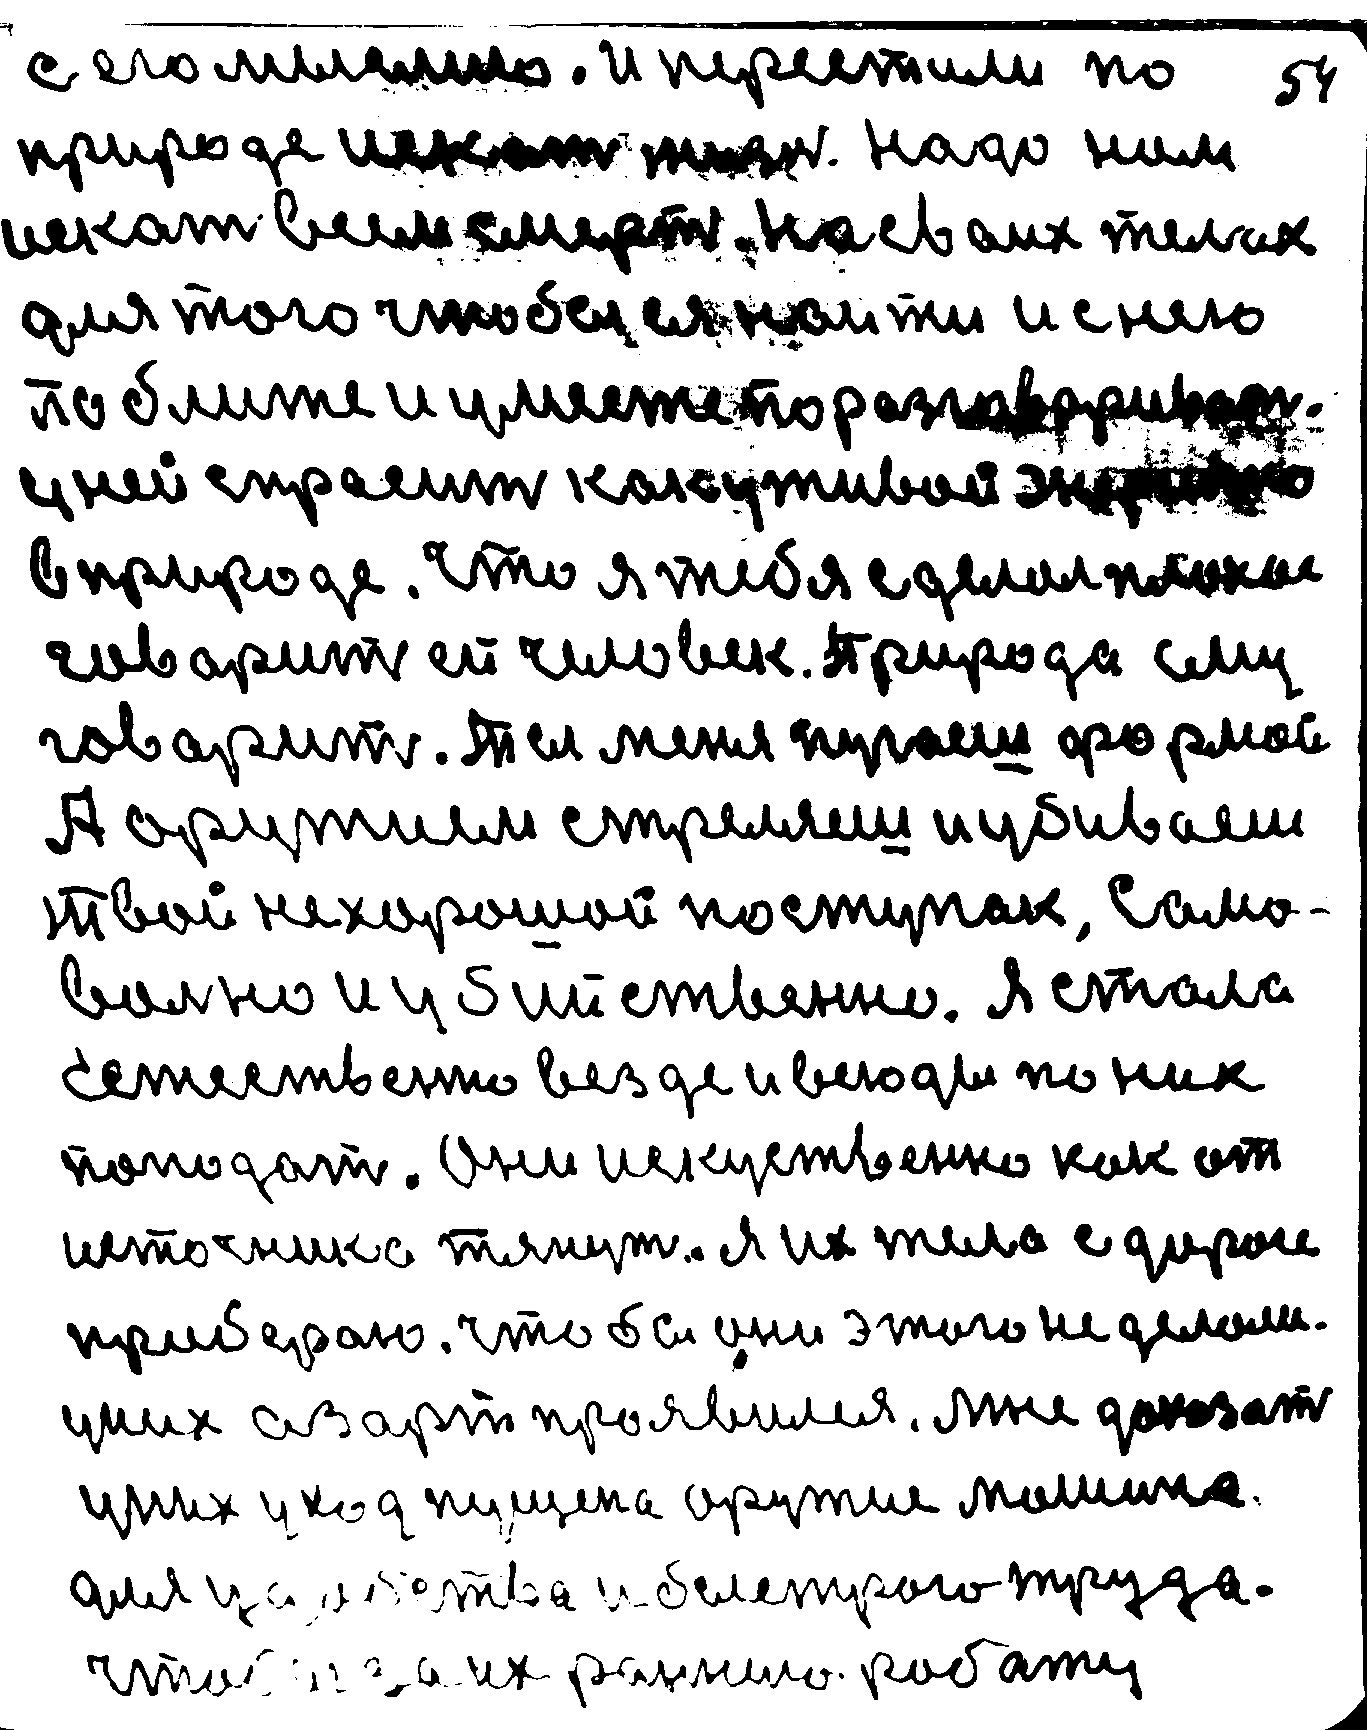 с его мыслению. И перестали по 54
природе искат жизн. Надо нам
искат всем смерт. На своих телах
для того чтобы ея наити и с нею
по ближе и уместе поразговариват.
у ней спросит как у живой энергично
в природе. Что я тебя сделал плохое
говорит ей человек. Природа ему
говорит. Ты меня пугаеш формой
А оружием стреляеш и убиваеш
твой нехорошой поступак, Само-
волно и убийственно. Я стала
естественно везде и всюды по них
поподат. Они искуственно как от
источника тянут. Я их тела с дарои
прибераю. Что бы они этого не делали.
у них азарт проявился. Мне доказат
у них уход пущена оружие машина.
для уа бства и быстрого труда.
за их раннию работу